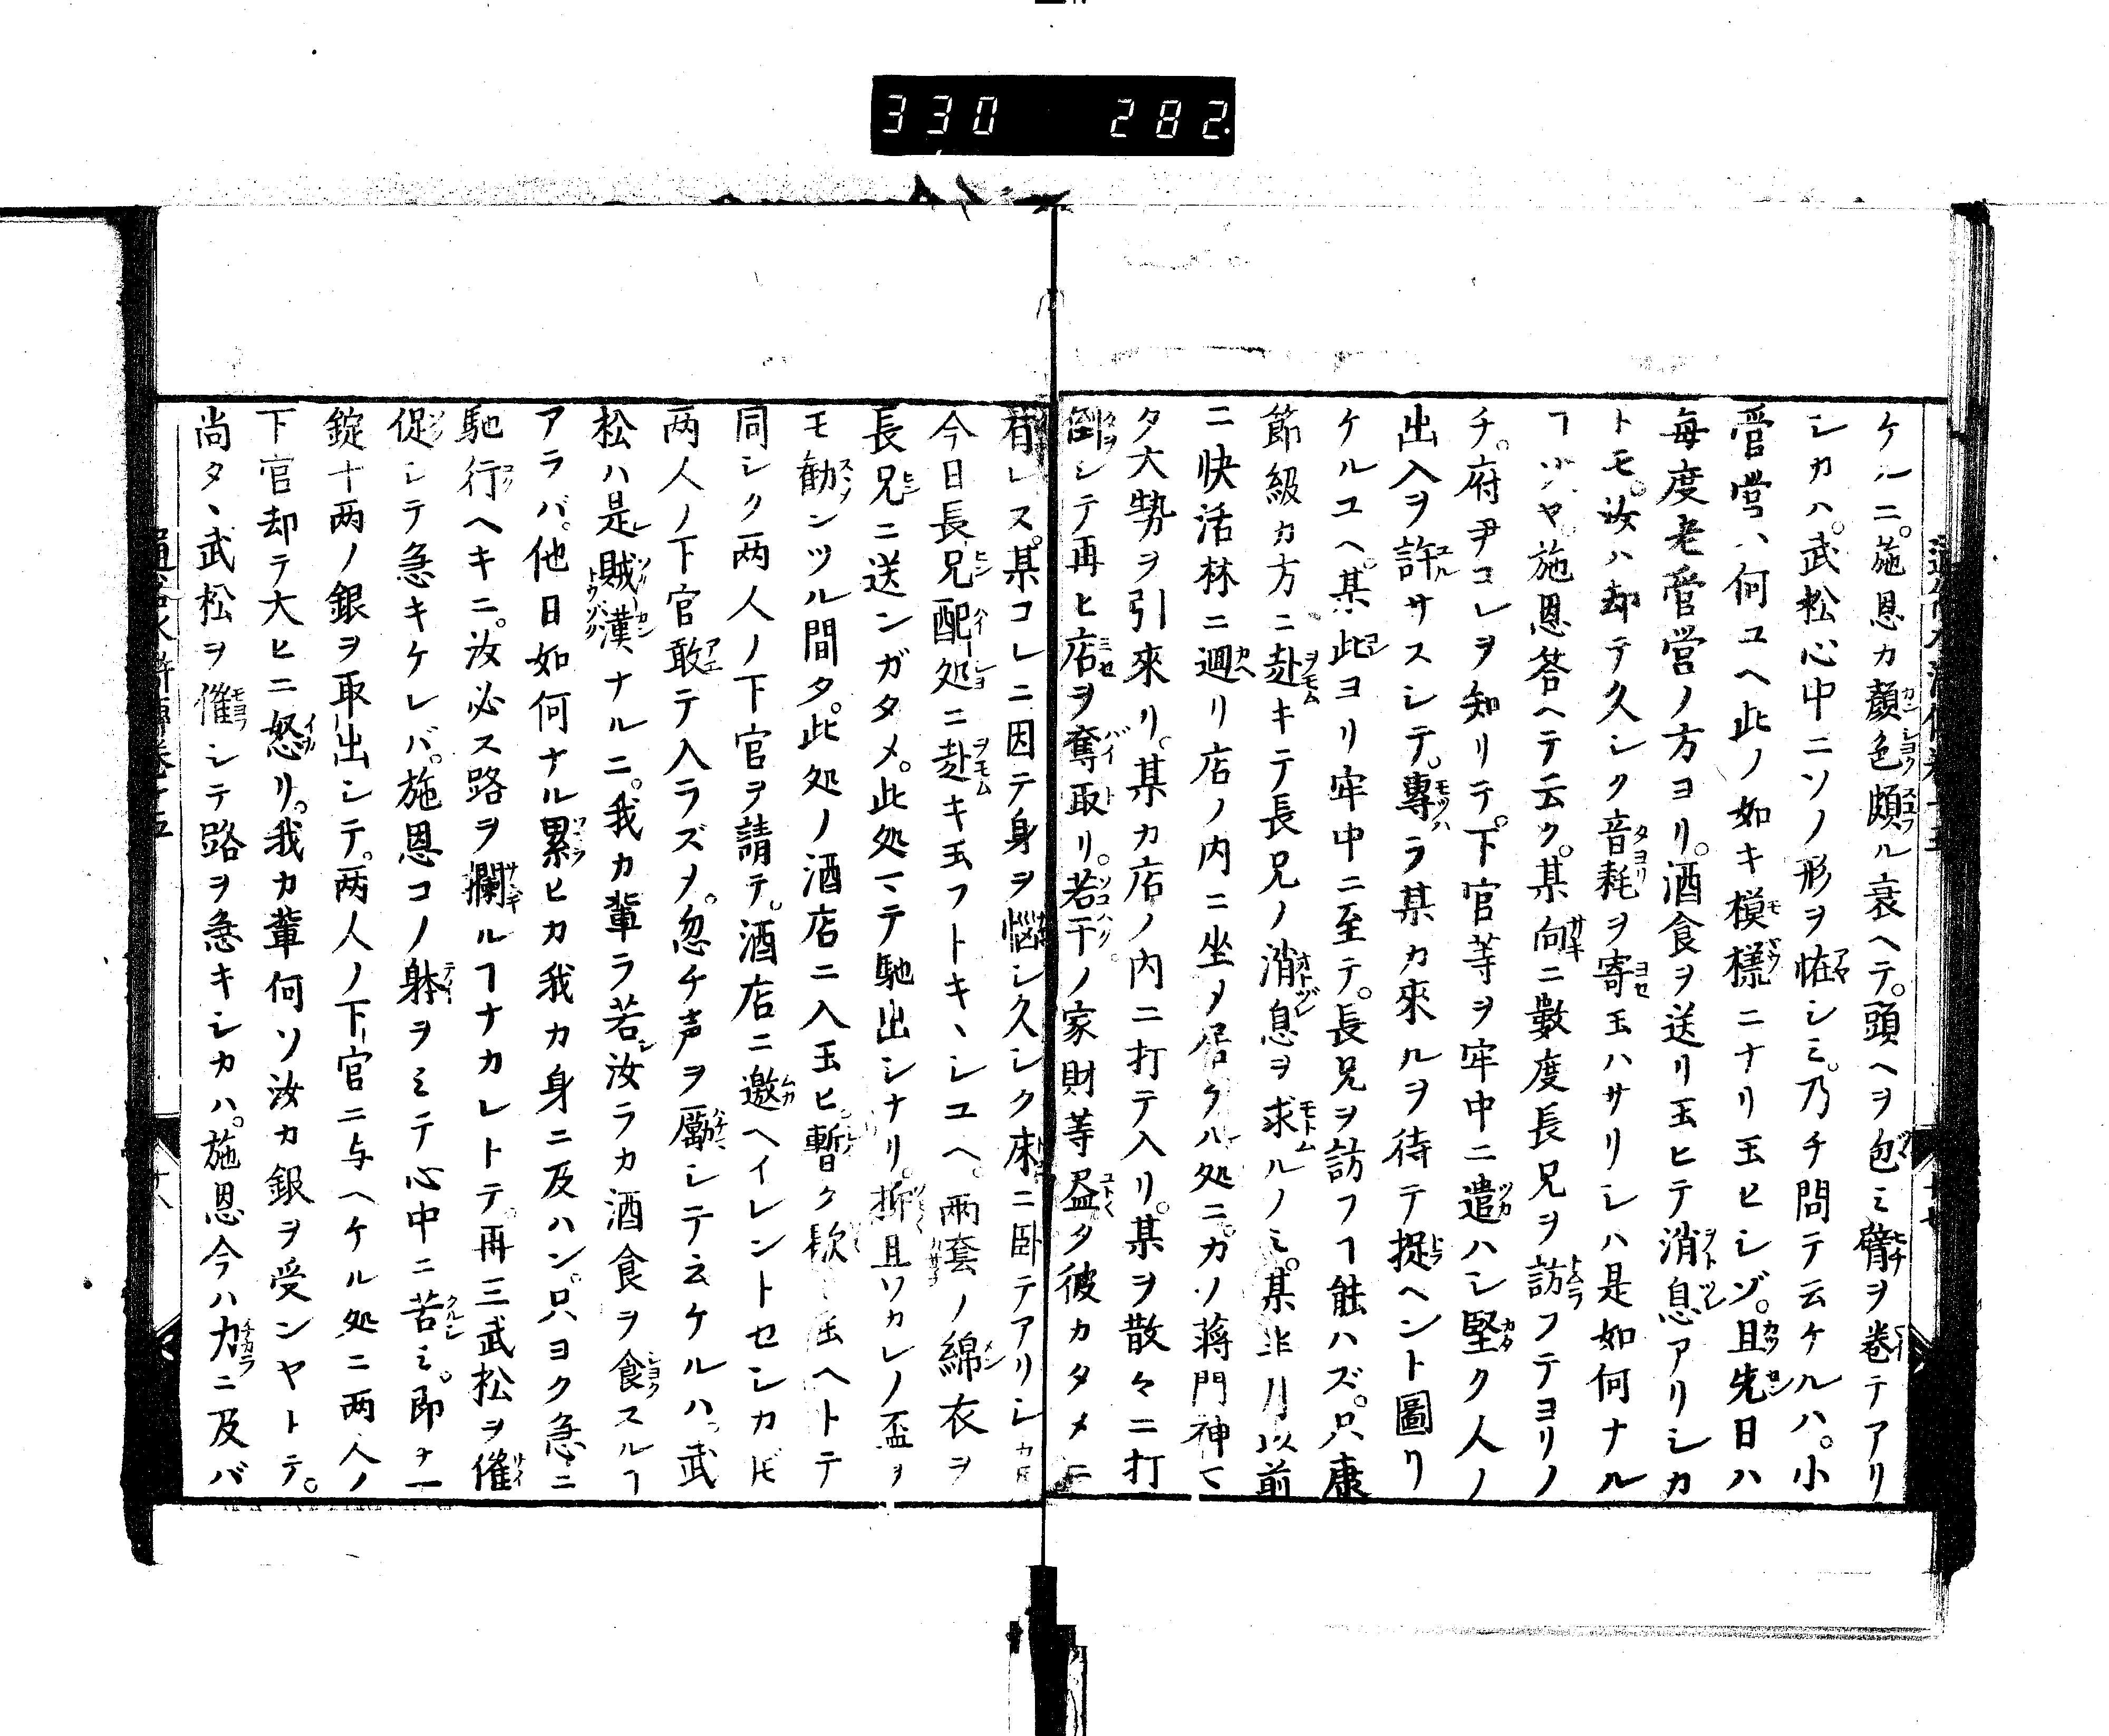 330 282
ケルニ。施恩カ顔色頗ル衰ヘテ。頭ヘヲ包ミ臂ヲ巻テアリ
シカハ。武松心中ニソノ形ヲ恠シミ。乃チ問テ云ケルハ。小
管営ハ何ユヘ此ノ如キ模様ニナリ玉ヒシゾ。且先日ハ
毎度老管営ノ方ヨリ。酒食ヲ送リ玉ヒテ消息アリシカ
トモ。汝ハ却テ久シク音耗ヲ寄玉ハサリシハ是如何ナル
ヿソヤ。施恩答ヘテ云ク。某向ニ數度長兄ヲ訪フテヨリノ
チ。府尹コレヲ知リテ。下官等ヲ牢中ニ遣ハシ堅ク人ノ
出入ヲ許サスシテ。專ラ某カ來ルヲ待テ捉ヘント圖リ
ケルユヘ。某此ヨリ牢中ニ至テ。長兄ヲ訪フヿ能ハズ。只康
節級カ方ニ赴キテ長兄ノ消息ヲ求ルノミ。某半月以前
ニ快活林ニ廻リ店ノ内ニ坐メ居ケル処ニ。カノ蒋門神マ
タ大勢ヲ引來リ。某カ店ノ内ニ打テ入リ。某ヲ散々ニ打
倒シテ再ヒ店ヲ奪取リ。若干ノ家財等盡タ彼カタメニ
レス。某コレニ因テ身ヲ惱シ久シク床ニ臥テアリシカ𪜈
今日長兄配処ニ赴キ玉フトキヽシユヘ。兩套ノ綿衣ヲ
長兄ニ送ンガタメ。此処マテ馳出シナリ。折且ソカレノ盃ヲ
モ勧ンツル間タ。此処ノ酒店ニ入玉ヒ。暫ク歇玉ヘトテ
同シク两人ノ下官ヲ請テ。酒店ニ邀ヘイレントセシカ𪜈
两人ノ下官敢テ入ラズメ。忽チ声ヲ勵シテ云ケルハ。武
松ハ是賊漢ナルニ。我カ輩ラ若汝ラカ酒食ヲ食スルヿ
アラバ。他日如何ナル累ヒカ我カ身ニ及ハン。只ヨク急ニ
馳行ヘキニ。汝必ス路ヲ攔ルヿナカレトテ。再三武松ヲ催
促シテ急キケレバ。施恩コノ躰ヲミテ心中ニ苦ミ。即チ一
錠十两ノ銀ヲ取出シテ。两人ノ下官ニ与ヘケル処ニ两人ノ
下官却テ大ヒニ怒リ。我カ輩何ソ汝カ銀ヲ受ンヤトテ。
尚タヽ武松ヲ催シテ路ヲ急キシカハ。施恩今ハ力ニ及バ